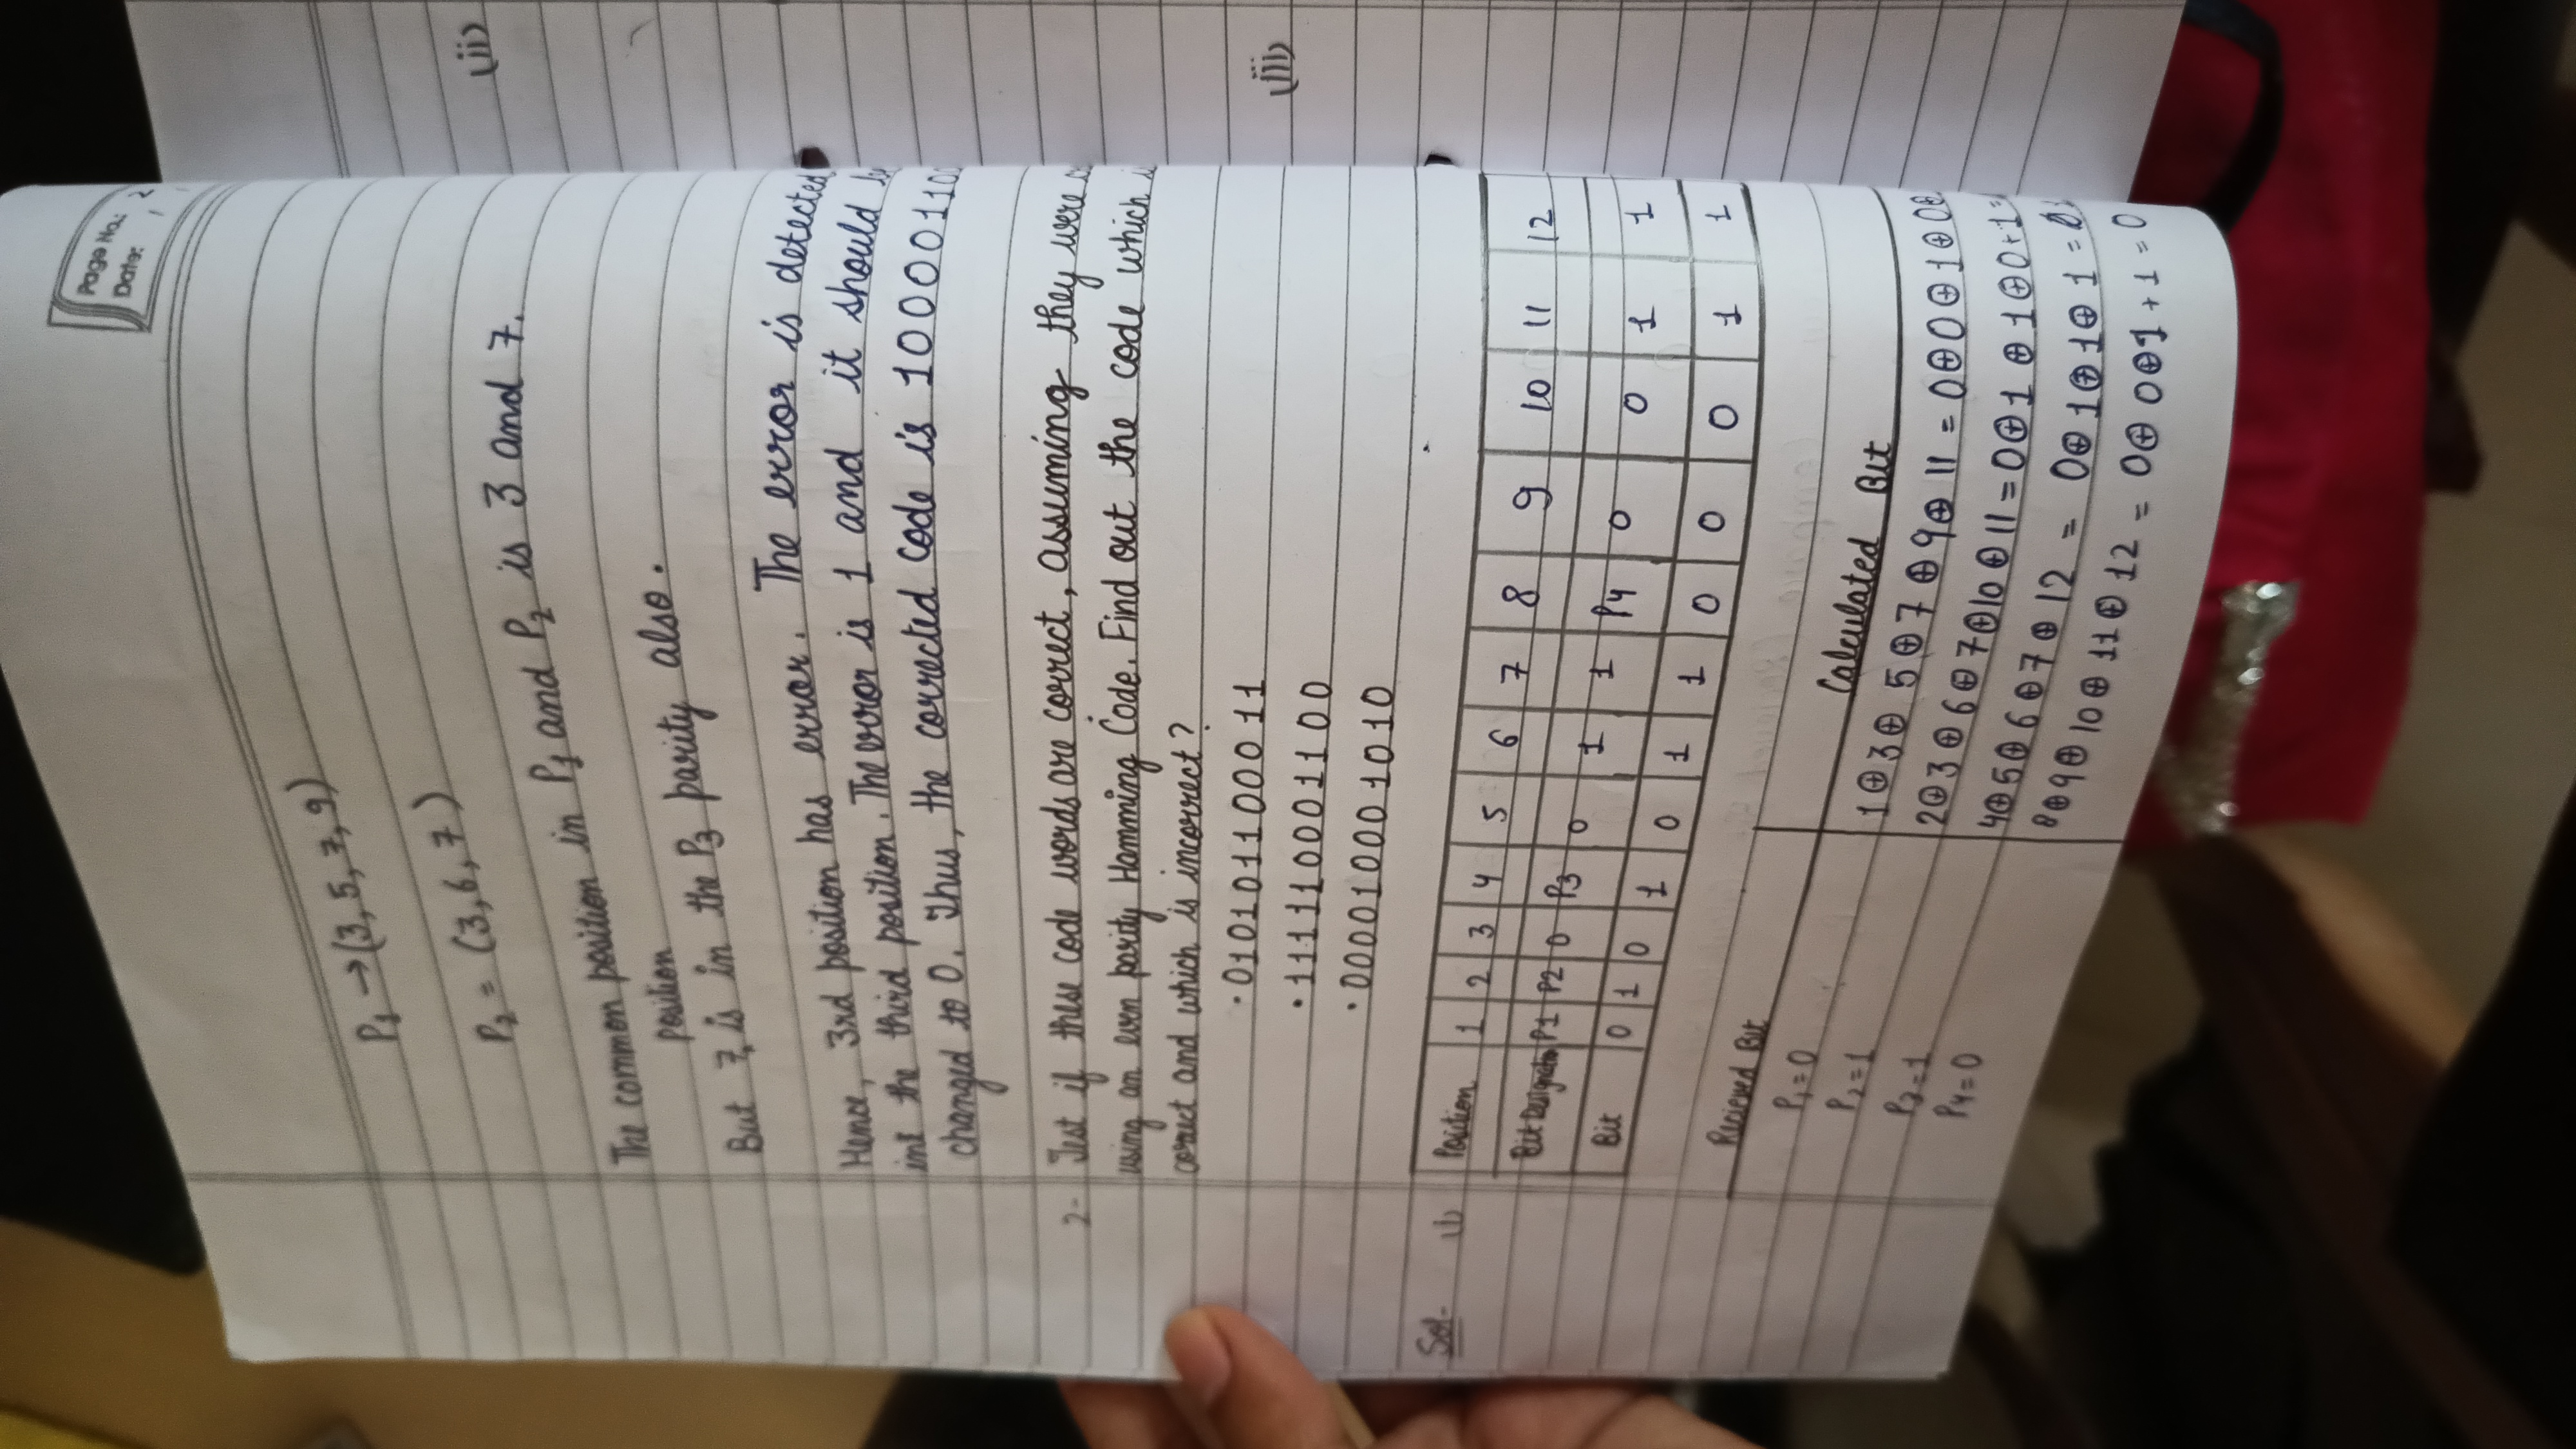 Page No.: 2
Date: / /
P1 → (3, 5, 7, 9)
P2 = (3, 6, 7)
The common position in P1 and P2 is 3 and 7.
position
But 7 is in the P3 parity also.
Hence, 3rd position has error. The error is detected
int the third position. The error is 1 and it should
changed to 0. Thus, the corrected code is 10000110
2- Test if these code words are correct, assuming they were
using an even parity Hamming Code. Find out the code which
correct and which is incorrect?
· 010101100011
· 111110001100
· 000010001010
Sol- (i)
Position 1 2 3 4 5 6 7 8 9 10 11 12
Bit Designation P1 P2 0 P3 0 1 1 P4 0 0 1 1
Bit 0 1 0 1 0 1 1 0 0 0 1 1
Recieved Bit Calculated Bit
P1 = 0 1⊕3⊕ 5⊕7⊕9⊕ 11 = 0⊕0⊕1⊕0⊕
P2 = 1 2⊕3⊕6⊕7⊕10⊕11 = 0⊕1⊕1⊕0+1 =
P3 = 1 4⊕5⊕6⊕7⊕12 = 0⊕1⊕1⊕1 = 1
P4 = 0 8⊕9⊕10⊕11⊕12 = 0⊕0⊕1+1 = 0
(ii)
(iii)